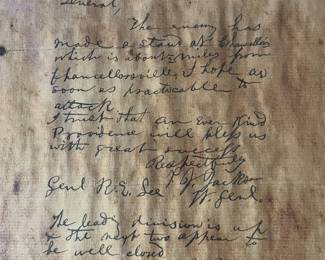 General,
The enemy has
made a stand at Chancellors
which is about 2 miles from
Chancellorsville. I hope as
soon as practicable to
attack.
I trust that an Ever Kind
Providence will bless us
with great success.
Respectfully
Genl R. E. Lee T. J. Jackson
Lt. Genl.
The leading division is up
& the next two appear to
be well closed